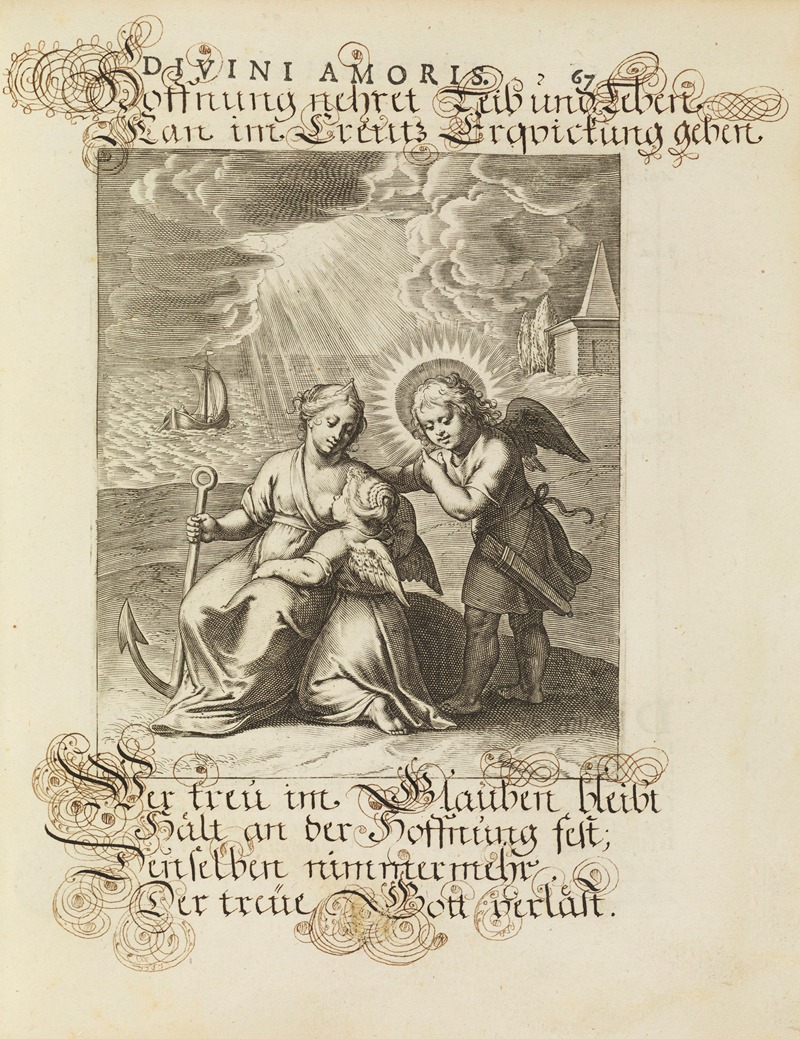 DIVINI AMORIS. 67
Hoffnung nehret Leib und Leben.
Kan im Creütz Erqvickung geben
Wer treü im Glauben bleibt
Hält an der Hoffnung fest;
Denselben nimmermehr.
Der treüe Gott verläst.